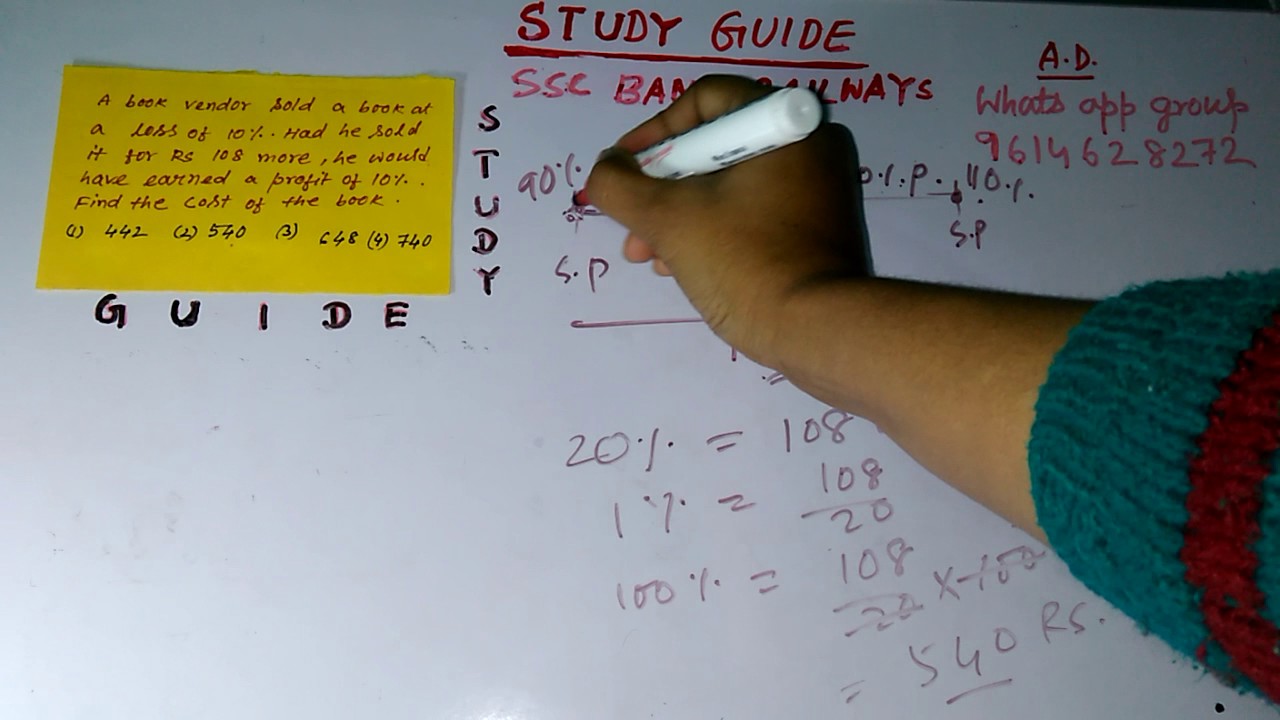 STUDY GUIDE
SSC BAN LWAYS
A.D.
Whats app group
9614628272
A book vendor sold a book at
a loss of 10%. Had he sold
it for Rs 108 more, he would
have earned a profit of 10%.
Find the cost of the book.
(1) 442 (2) 540 (3) 648 (4) 740
STUDY
GUIDE
90%
%.P. 110%.
S.P
S.P
=
20% = 108
1% = 108/20
100% = 108/20 X 100
= 540 RS.